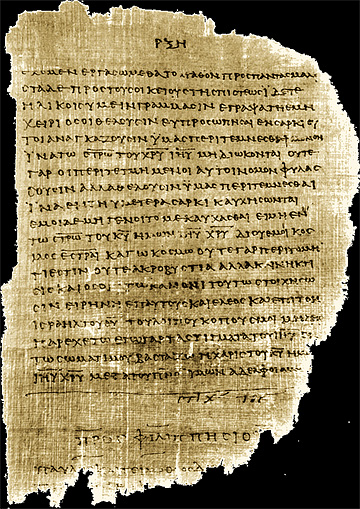 ΡΞΗ
ΕΧΟΜΕΝ ΕΡΓΑΣΩΜΕΘΑ ΤΟ ΑΓΑΘΟΝ ΠΡΟΣ ΠΑΝΤΑΣ ΜΑΛΙ
ΣΤΑ ΔΕ ΠΡΟΣ ΤΟΥΣ ΟΙΚΕΙΟΥΣ ΤΗΣ ΠΙΣΤΕΩΣ ΙΔΕΤΕ
ΗΛΙΚΟΙΣ ΥΜΕΙΝ ΓΡΑΜΜΑΣΙΝ ΕΓΡΑΨΑ ΤΗ ΕΜΗ
ΧΕΙΡΙ ΟΣΟΙ ΘΕΛΟΥΣΙΝ ΕΥΠΡΟΣΩΠΗΣΑΙ ΕΝ ΣΑΡΚΙ ΟΥ
ΤΟΙ ΑΝΑΓΚΑΖΟΥΣΙΝ ΥΜΑΣ ΠΕΡΙΤΕΜΝΕΣΘΑΙ ΜΟΝΟΝ
ΙΝΑ ΤΩ ΣΤΡΩ ΤΟΥ ΧΡΥ ΙΗΥ ΜΗ ΔΙΩΚΟΝΤΑΙ ΟΥΤΕ
ΓΑΡ ΟΙ ΠΕΡΙΤΕΤΜΗΜΕΝΟΙ ΑΥΤΟΙ ΝΟΜΟΝ ΦΥΛΑΣ
ΣΟΥΣΙΝ ΑΛΛΑ ΘΕΛΟΥΣΙΝ ΥΜΑΣ ΠΕΡΙΤΕΜΝΕΣΘΑΙ
ΙΝΑ ΕΝ ΤΗ ΥΜΕΤΕΡΑ ΣΑΡΚΙ ΚΑΥΧΗΣΩΝΤΑΙ
ΕΜΟΙ ΔΕ ΜΗ ΓΕΝΟΙΤΟ ΜΕ ΚΑΥΧΑΣΘΑΙ ΕΙ ΜΗ ΕΝ
ΤΩ ΣΤΡΩ ΤΟΥ ΚΥ ΗΜΩΝ ΙΗΥ ΧΡΥ ΔΙ ΟΥ ΕΜΟΙ ΚΟΣ
ΜΟΣ ΕΣΤΡΑΙ ΚΑΓΩ ΚΟΣΜΩ ΟΥΤΕ ΓΑΡ ΠΕΡΙΤΟΜΗ
ΤΙ ΕΣΤΙΝ ΟΥΤΕ ΑΚΡΟΒΥΣΤΙΑ ΑΛΛΑ ΚΑΙΝΗ ΚΤΙ
ΣΙΣ ΚΑΙ ΟΣΟΙ ΤΩ ΚΑΝΟΝΙ ΤΟΥΤΩ ΣΤΟΙΧΗΣΩ
ΣΙΝ ΕΙΡΗΝΗ ΕΠ ΑΥΤΟΥΣ ΚΑΙ ΕΛΕΟΣ ΚΑΙ ΕΠΙ ΤΟΝ
ΙΣΡΑΗΛ ΤΟΥ ΘΥ ΤΟΥ ΛΟΙΠΟΥ ΚΟΠΟΥΣ ΜΟΙ ΜΗΔΕΙΣ
ΠΑΡΕΧΕΤΩ ΕΓΩ ΓΑΡ ΤΑ ΣΤΙΓΜΑΤΑ ΤΟΥ ΙΗΥ ΕΝ
ΤΩ ΣΩΜΑΤΙ ΜΟΥ ΒΑΣΤΑΖΩ Η ΧΑΡΙΣ ΤΟΥ ΚΥ ΗΜ
ΙΗΥ ΧΡΥ ΜΕΤΑ ΤΟΥ ΠΝΣ ΥΜΩΝ ΑΔΕΛΦΟΙ ΑΜΗΝ
ΣΤΙΧ
ΠΡΟΣ ΦΙΛΙΠΠΗΣΙΟΥΣ
ΠΑΥΛΟΣ ΚΑΙ ΤΕΙΜΟΘΕΟΣ